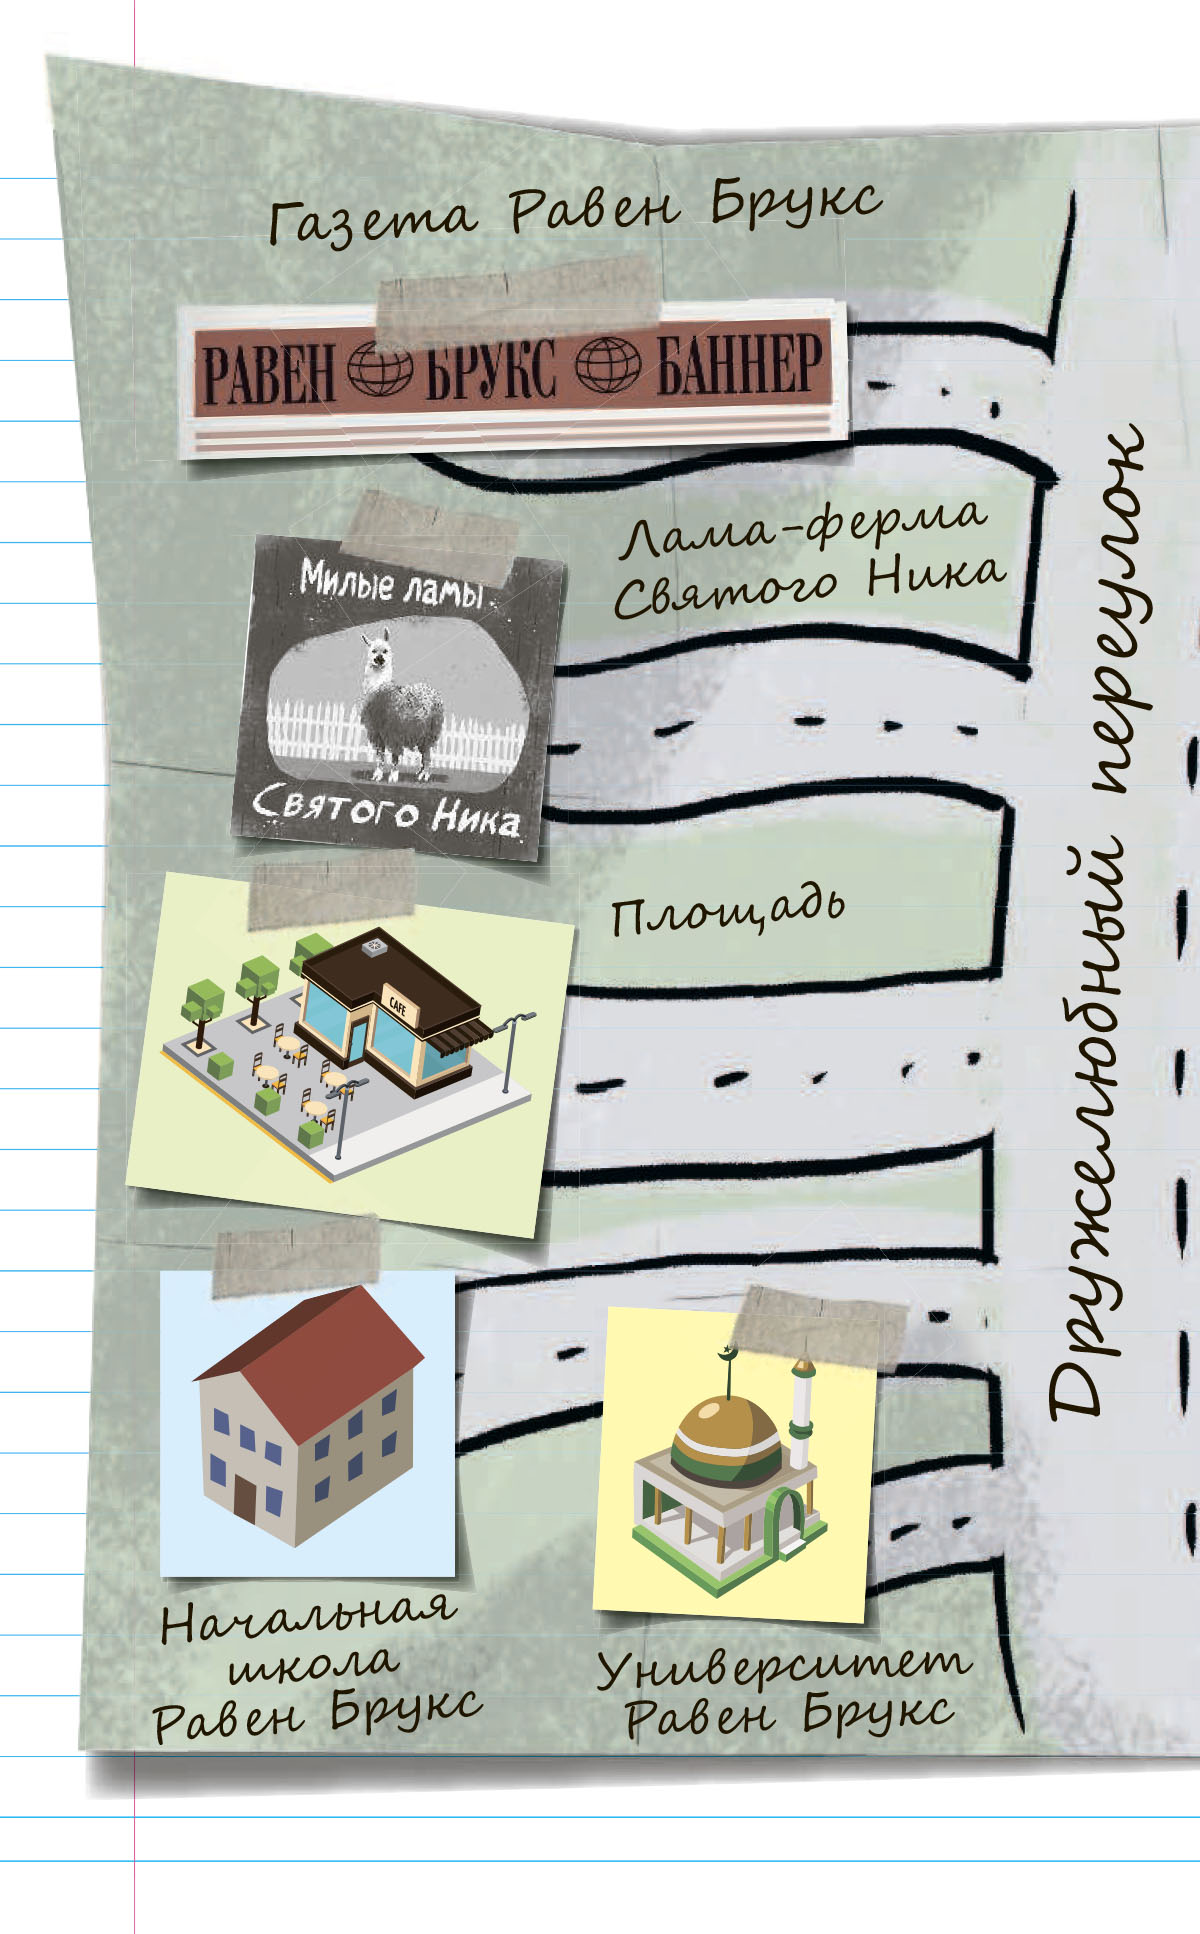 Газета Равен Брукс
РАВЕН БРУКС БАННЕР
Лама-ферма
Святого Ника
Милые ламы
Святого Ника
Площадь
CAFE
Дружелюбный переулок
Начальная
школа
Равен Брукс
Университет
Равен Брукс